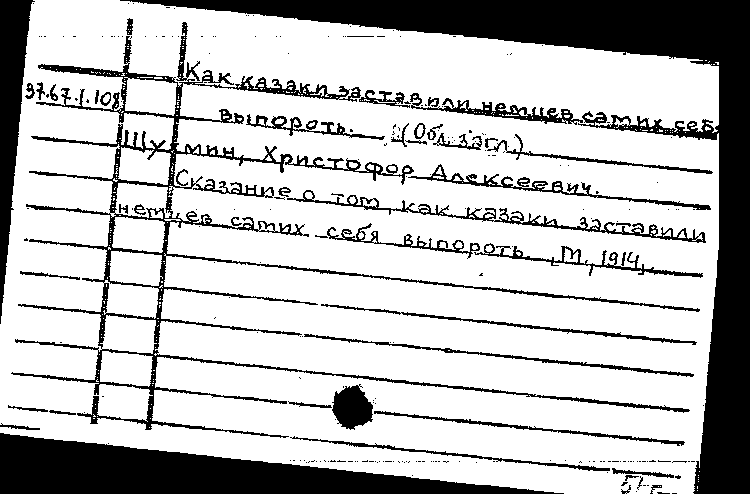 Как казаки заставили немцев самих себя
37.67.1.108
выпороть. (Обл. загл.).
Шухмин, Христофор Алексеевич.
Сказание о том, как казаки заставили
немцев самих себя выпороть. М., 1914.